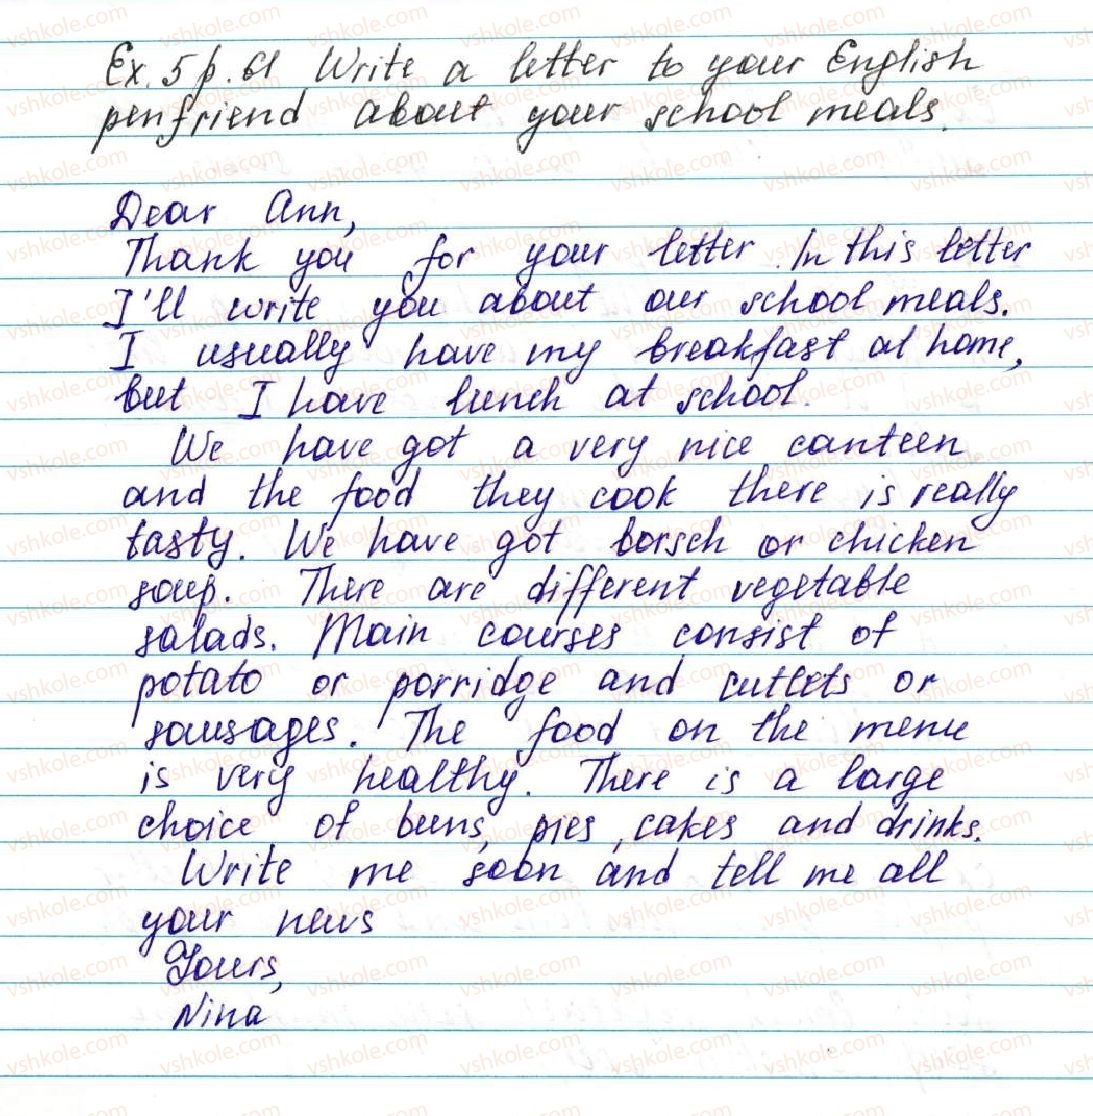 Ex. 5 p. 61 Write a letter to your English
penfriend about your school meals.
Dear Ann,
Thank you for your letter. In this letter
I'll write you about our school meals.
I usually have my breakfast at home,
but I have lunch at school.
We have got a very nice canteen
and the food they cook there is really
tasty. We have got borsch or chicken
soup. There are different vegetable
salads. Main courses consist of
potato or porridge and cutlets or
sausages. The food on the menu
is very healthy. There is a large
choice of buns, pies, cakes and drinks.
Write me soon and tell me all
your news
Yours,
Nina